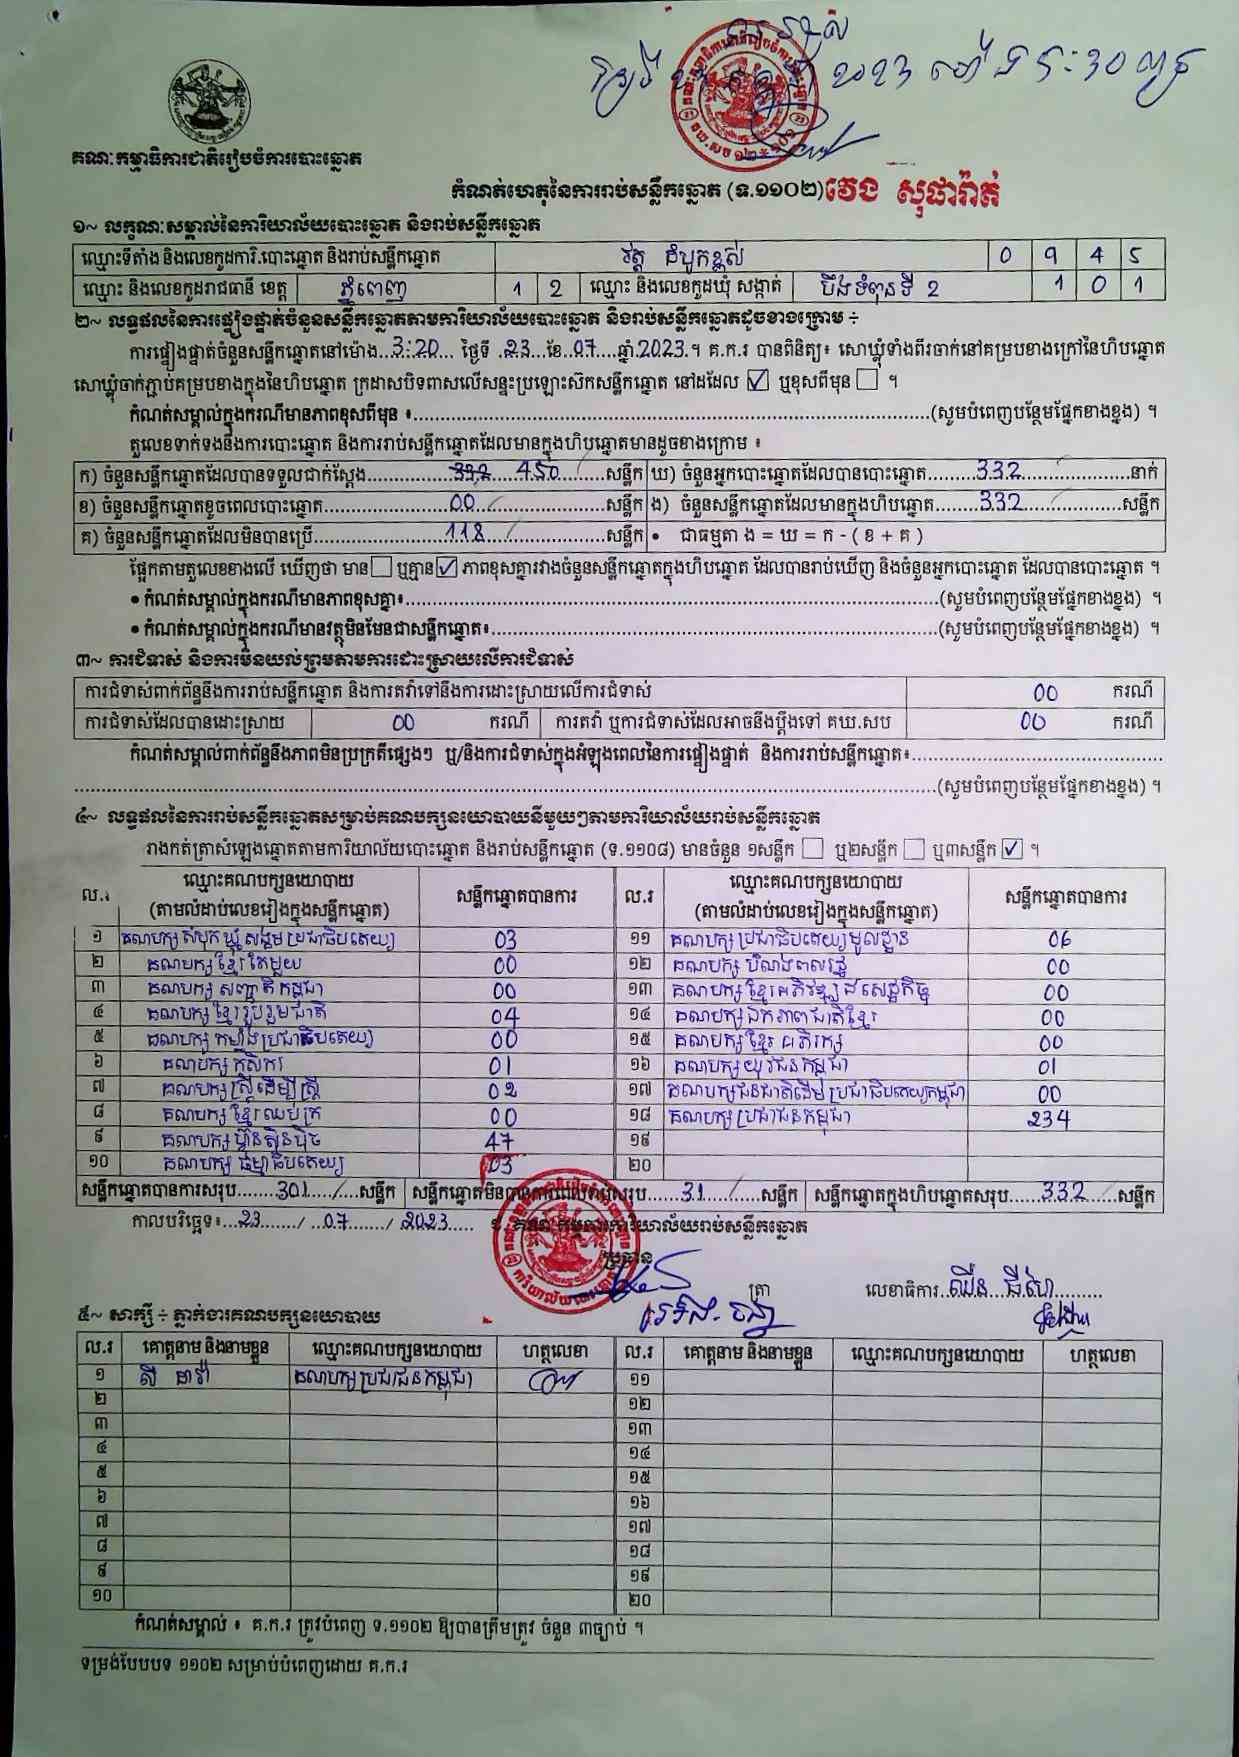 គណៈកម្មាធិការជាតិរៀបចំការបោះឆ្នោត
កំណត់ហេតុនៃការរាប់សន្លឹកឆ្នោត (ទ.១១០២) វេង សុផារ៉ាត់
១~ លក្ខណៈសម្គាល់នៃការិយាល័យបោះឆ្នោត និងរាប់សន្លឹកឆ្នោត
ឈ្មោះទីតាំង និងលេខកូដការិ.បោះឆ្នោត និងរាប់សន្លឹកឆ្នោត វត្ត ដំបូកខ្ពស់ 0 9 4 5
ឈ្មោះ និងលេខកូដរាជធានី ខេត្ត ភ្នំពេញ 1 2 ឈ្មោះ និងលេខកូដឃុំ សង្កាត់ បឹងទំពុនទី 2 1 0 1
២~ លទ្ធផលនៃការផ្ទៀងផ្ទាត់ចំនួនសន្លឹកឆ្នោតតាមការិយាល័យបោះឆ្នោត និងរាប់សន្លឹកឆ្នោតដូចខាងក្រោម ÷
ការផ្ទៀងផ្ទាត់ចំនួនសន្លឹកឆ្នោតនៅម៉ោង...3:20... ថ្ងៃទី .23...ខែ..07....ឆ្នាំ.2023.។ គ.ក.រ បានពិនិត្យ៖ សោឃ្លុំទាំងពីរចាក់នៅគម្របខាងក្រៅនៃហិបឆ្នោត
សោឃ្លុំចាក់ភ្ជាប់គម្របខាងក្នុងនៃហិបឆ្នោត ក្រដាសបិទពាសលើសន្ទះប្រឡោះស៊កសន្លឹកឆ្នោត នៅដដែល ☑ ឬខុសពីមុន ☐ ។
កំណត់សម្គាល់ក្នុងករណីមានភាពខុសពីមុន ៖...(សូមបំពេញបន្ថែមផ្នែកខាងខ្នង) ។
តួលេខទាក់ទងនឹងការបោះឆ្នោត និងការរាប់សន្លឹកឆ្នោតដែលមានក្នុងហិបឆ្នោតមានដូចខាងក្រោម ៖
ក) ចំនួនសន្លឹកឆ្នោតដែលបានទទួលជាក់ស្តែង...332...450...សន្លឹក ឃ) ចំនួនអ្នកបោះឆ្នោតដែលបានបោះឆ្នោត...332...នាក់
ខ) ចំនួនសន្លឹកឆ្នោតខូចពេលបោះឆ្នោត...00...សន្លឹក ង) ចំនួនសន្លឹកឆ្នោតដែលមានក្នុងហិបឆ្នោត...332...សន្លឹក
គ) ចំនួនសន្លឹកឆ្នោតដែលមិនបានប្រើ...118...សន្លឹក • ជាធម្មតា ង = ឃ = ក - ( ខ + គ )
ផ្អែកតាមតួលេខខាងលើ ឃើញថា មាន ☐ ឬគ្មាន ☑ ភាពខុសគ្នារវាងចំនួនសន្លឹកឆ្នោតក្នុងហិបឆ្នោត ដែលបានរាប់ឃើញ និងចំនួនអ្នកបោះឆ្នោត ដែលបានបោះឆ្នោត ។
• កំណត់សម្គាល់ក្នុងករណីមានភាពខុសគ្នា៖...(សូមបំពេញបន្ថែមផ្នែកខាងខ្នង) ។
• កំណត់សម្គាល់ក្នុងករណីមានវត្ថុមិនមែនជាសន្លឹកឆ្នោត៖...(សូមបំពេញបន្ថែមផ្នែកខាងខ្នង) ។
៣~ ការជំទាស់ និងការមិនយល់ព្រមតាមការដោះស្រាយលើការជំទាស់
ការជំទាស់ពាក់ព័ន្ធនឹងការរាប់សន្លឹកឆ្នោត និងការតវ៉ាទៅនឹងការដោះស្រាយលើការជំទាស់ 00 ករណី
ការជំទាស់ដែលបានដោះស្រាយ 00 ករណី ការតវ៉ា ឬការជំទាស់ដែលអាចនឹងប្តឹងទៅ គឃ.សប 00 ករណី
កំណត់សម្គាល់ពាក់ព័ន្ធនឹងភាពមិនប្រក្រតីផ្សេងៗ ឬ/និងការជំទាស់ក្នុងអំឡុងពេលនៃការផ្ទៀងផ្ទាត់ និងការរាប់សន្លឹកឆ្នោត៖...
...(សូមបំពេញបន្ថែមផ្នែកខាងខ្នង) ។
៤~ លទ្ធផលនៃការរាប់សន្លឹកឆ្នោតសម្រាប់គណបក្សនយោបាយនីមួយៗតាមការិយាល័យរាប់សន្លឹកឆ្នោត
តារាងកត់ត្រាសំឡេងឆ្នោតតាមការិយាល័យបោះឆ្នោត និងរាប់សន្លឹកឆ្នោត (ទ.១១០៨) មានចំនួន ១សន្លឹក ☐ ឬ២សន្លឹក ☐ ឬ៣សន្លឹក ☑ ។
ល.រ ឈ្មោះគណបក្សនយោបាយ (តាមលំដាប់លេខរៀងក្នុងសន្លឹកឆ្នោត) សន្លឹកឆ្នោតបានការ ល.រ ឈ្មោះគណបក្សនយោបាយ (តាមលំដាប់លេខរៀងក្នុងសន្លឹកឆ្នោត) សន្លឹកឆ្នោតបានការ
១ គណបក្ស សំបុកឃ្មុំសង្គមប្រជាធិបតេយ្យ 03 ១១ គណបក្ស ប្រជាធិបតេយ្យមូលដ្ឋាន 06
២ គណបក្ស ខ្មែរតែមួយ 00 ១២ គណបក្ស បំណងពលរដ្ឋ 00
៣ គណបក្ស សញ្ជាតិកម្ពុជា 00 ១៣ គណបក្ស ខ្មែរអភិវឌ្ឍន៍សេដ្ឋកិច្ច 00
៤ គណបក្ស ខ្មែររួបរួមជាតិ 04 ១៤ គណបក្ស ឯកភាពជាតិខ្មែរ 00
៥ គណបក្ស កម្លាំងប្រជាធិបតេយ្យ 00 ១៥ គណបក្ស ខ្មែរអភិរក្ស 00
៦ គណបក្ស កសិករ 01 ១៦ គណបក្ស យុវជនកម្ពុជា 01
៧ គណបក្ស ស្ត្រីដើម្បីស្ត្រី 02 ១៧ គណបក្សជនជាតិដើមប្រជាធិបតេយ្យកម្ពុជា 00
៨ គណបក្ស ខ្មែរឈប់ក្រ 00 ១៨ គណបក្ស ប្រជាជនកម្ពុជា 234
៩ គណបក្ស ហ្វ៊ុនស៊ិនប៉ិច 47 ១៩
១០ គណបក្ស ធម្មាធិបតេយ្យ 03 ២០
សន្លឹកឆ្នោតបានការសរុប...301...សន្លឹក សន្លឹកឆ្នោតមិនបានការពេលរាប់សរុប...31...សន្លឹក សន្លឹកឆ្នោតក្នុងហិបឆ្នោតសរុប...332...សន្លឹក
កាលបរិច្ឆេទ៖...23..../...07..../...2023.... គណៈកម្មការការិយាល័យរាប់សន្លឹកឆ្នោត
ប្រធាន
ត្រា លេខាធិការ
៥~ សាក្សី ÷ ភ្នាក់ងារគណបក្សនយោបាយ
ល.រ គោត្តនាម និងនាមខ្លួន ឈ្មោះគណបក្សនយោបាយ ហត្ថលេខា ល.រ គោត្តនាម និងនាមខ្លួន ឈ្មោះគណបក្សនយោបាយ ហត្ថលេខា
១ គណបក្សប្រជាជនកម្ពុជា ១១
២ ១២
៣ ១៣
៤ ១៤
៥ ១៥
៦ ១៦
៧ ១៧
៨ ១៨
៩ ១៩
១០ ២០
កំណត់សម្គាល់ ៖ គ.ក.រ ត្រូវបំពេញ ទ.១១០២ ឱ្យបានត្រឹមត្រូវ ចំនួន ៣ច្បាប់ ។
ទម្រង់បែបបទ ១១០២ សម្រាប់បំពេញដោយ គ.ក.រ